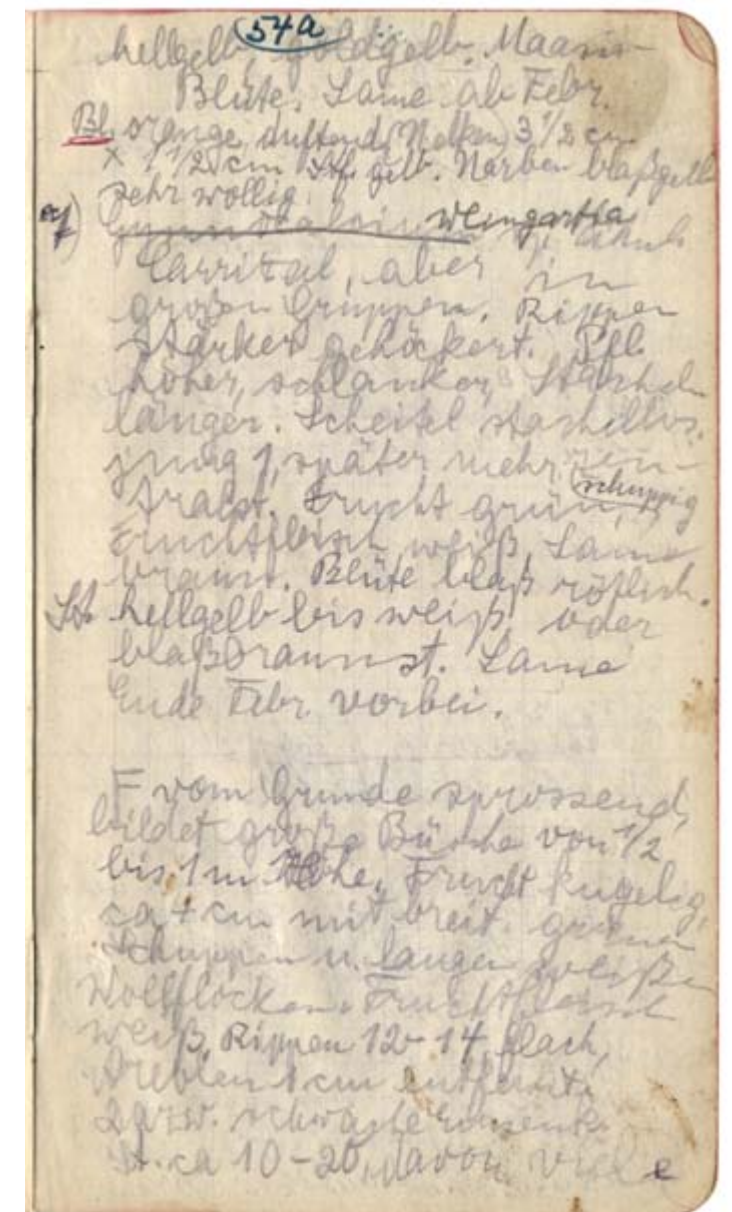 54a
hellgelb, goldgelb.
Blüte. Same ab Febr.
Bl. orange duftend (Nelken) 3 1/2 cm
x 1 1/2 cm Stf. gelb. Narben blaßgelb
sehr wollig.
Weingartia
Carrizal, aber in
großen Gruppen. Rippen
stärker gehöckert. Pfl.
höher, schlanker, Stacheln
länger. Scheitel stachellos.
jung 1, später mehr zen-
tralst. Frucht grün, schuppig
Fruchtfleisch weiß, Same
braun. Blüte blaß rötlich.
St. hellgelb bis weiß, oder
blaßbraunst. Same
Ende Febr. vorbei.
= vom Grunde sprossend,
bildet große Büsche von 1/2
bis 1 m Höhe. Frucht kugelig,
ca + cm mit breit. grünen
Schuppen u. langen weißen
Wollflocken. Fruchtfleisch
weiß, Rippen 12-14, flach,
Areolen 1 cm entfernt,
St. ca 10-20, davon viele